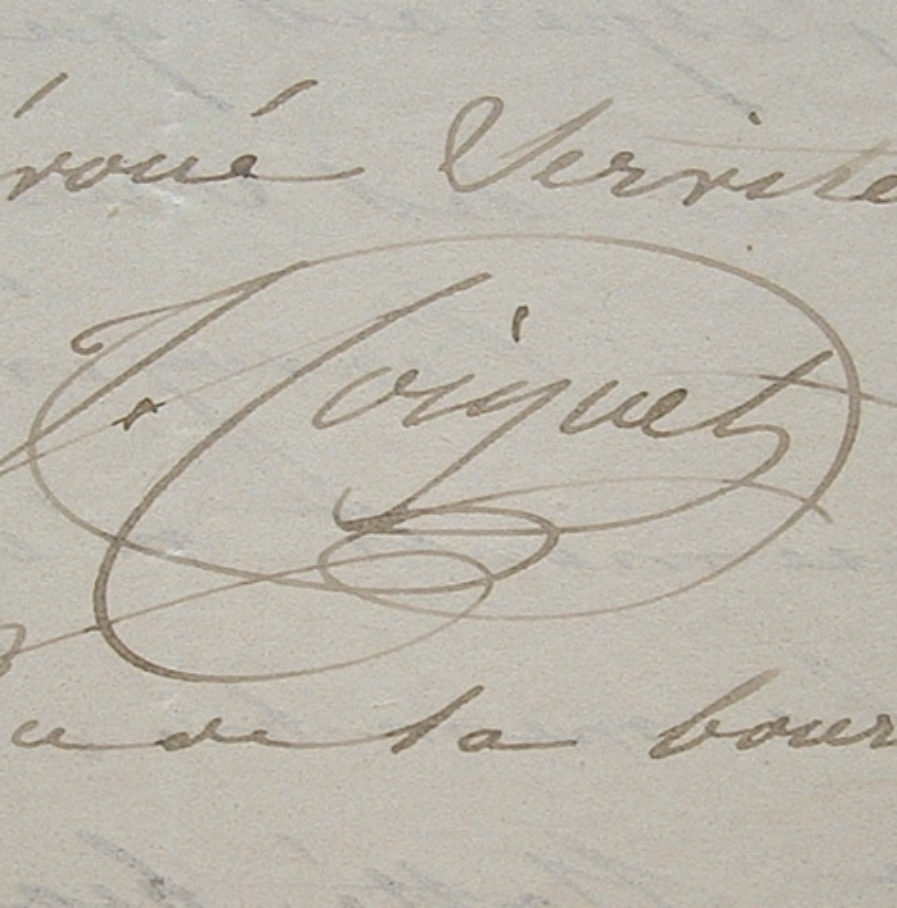 évoué Servite
J. Coiquet
ue de la bour